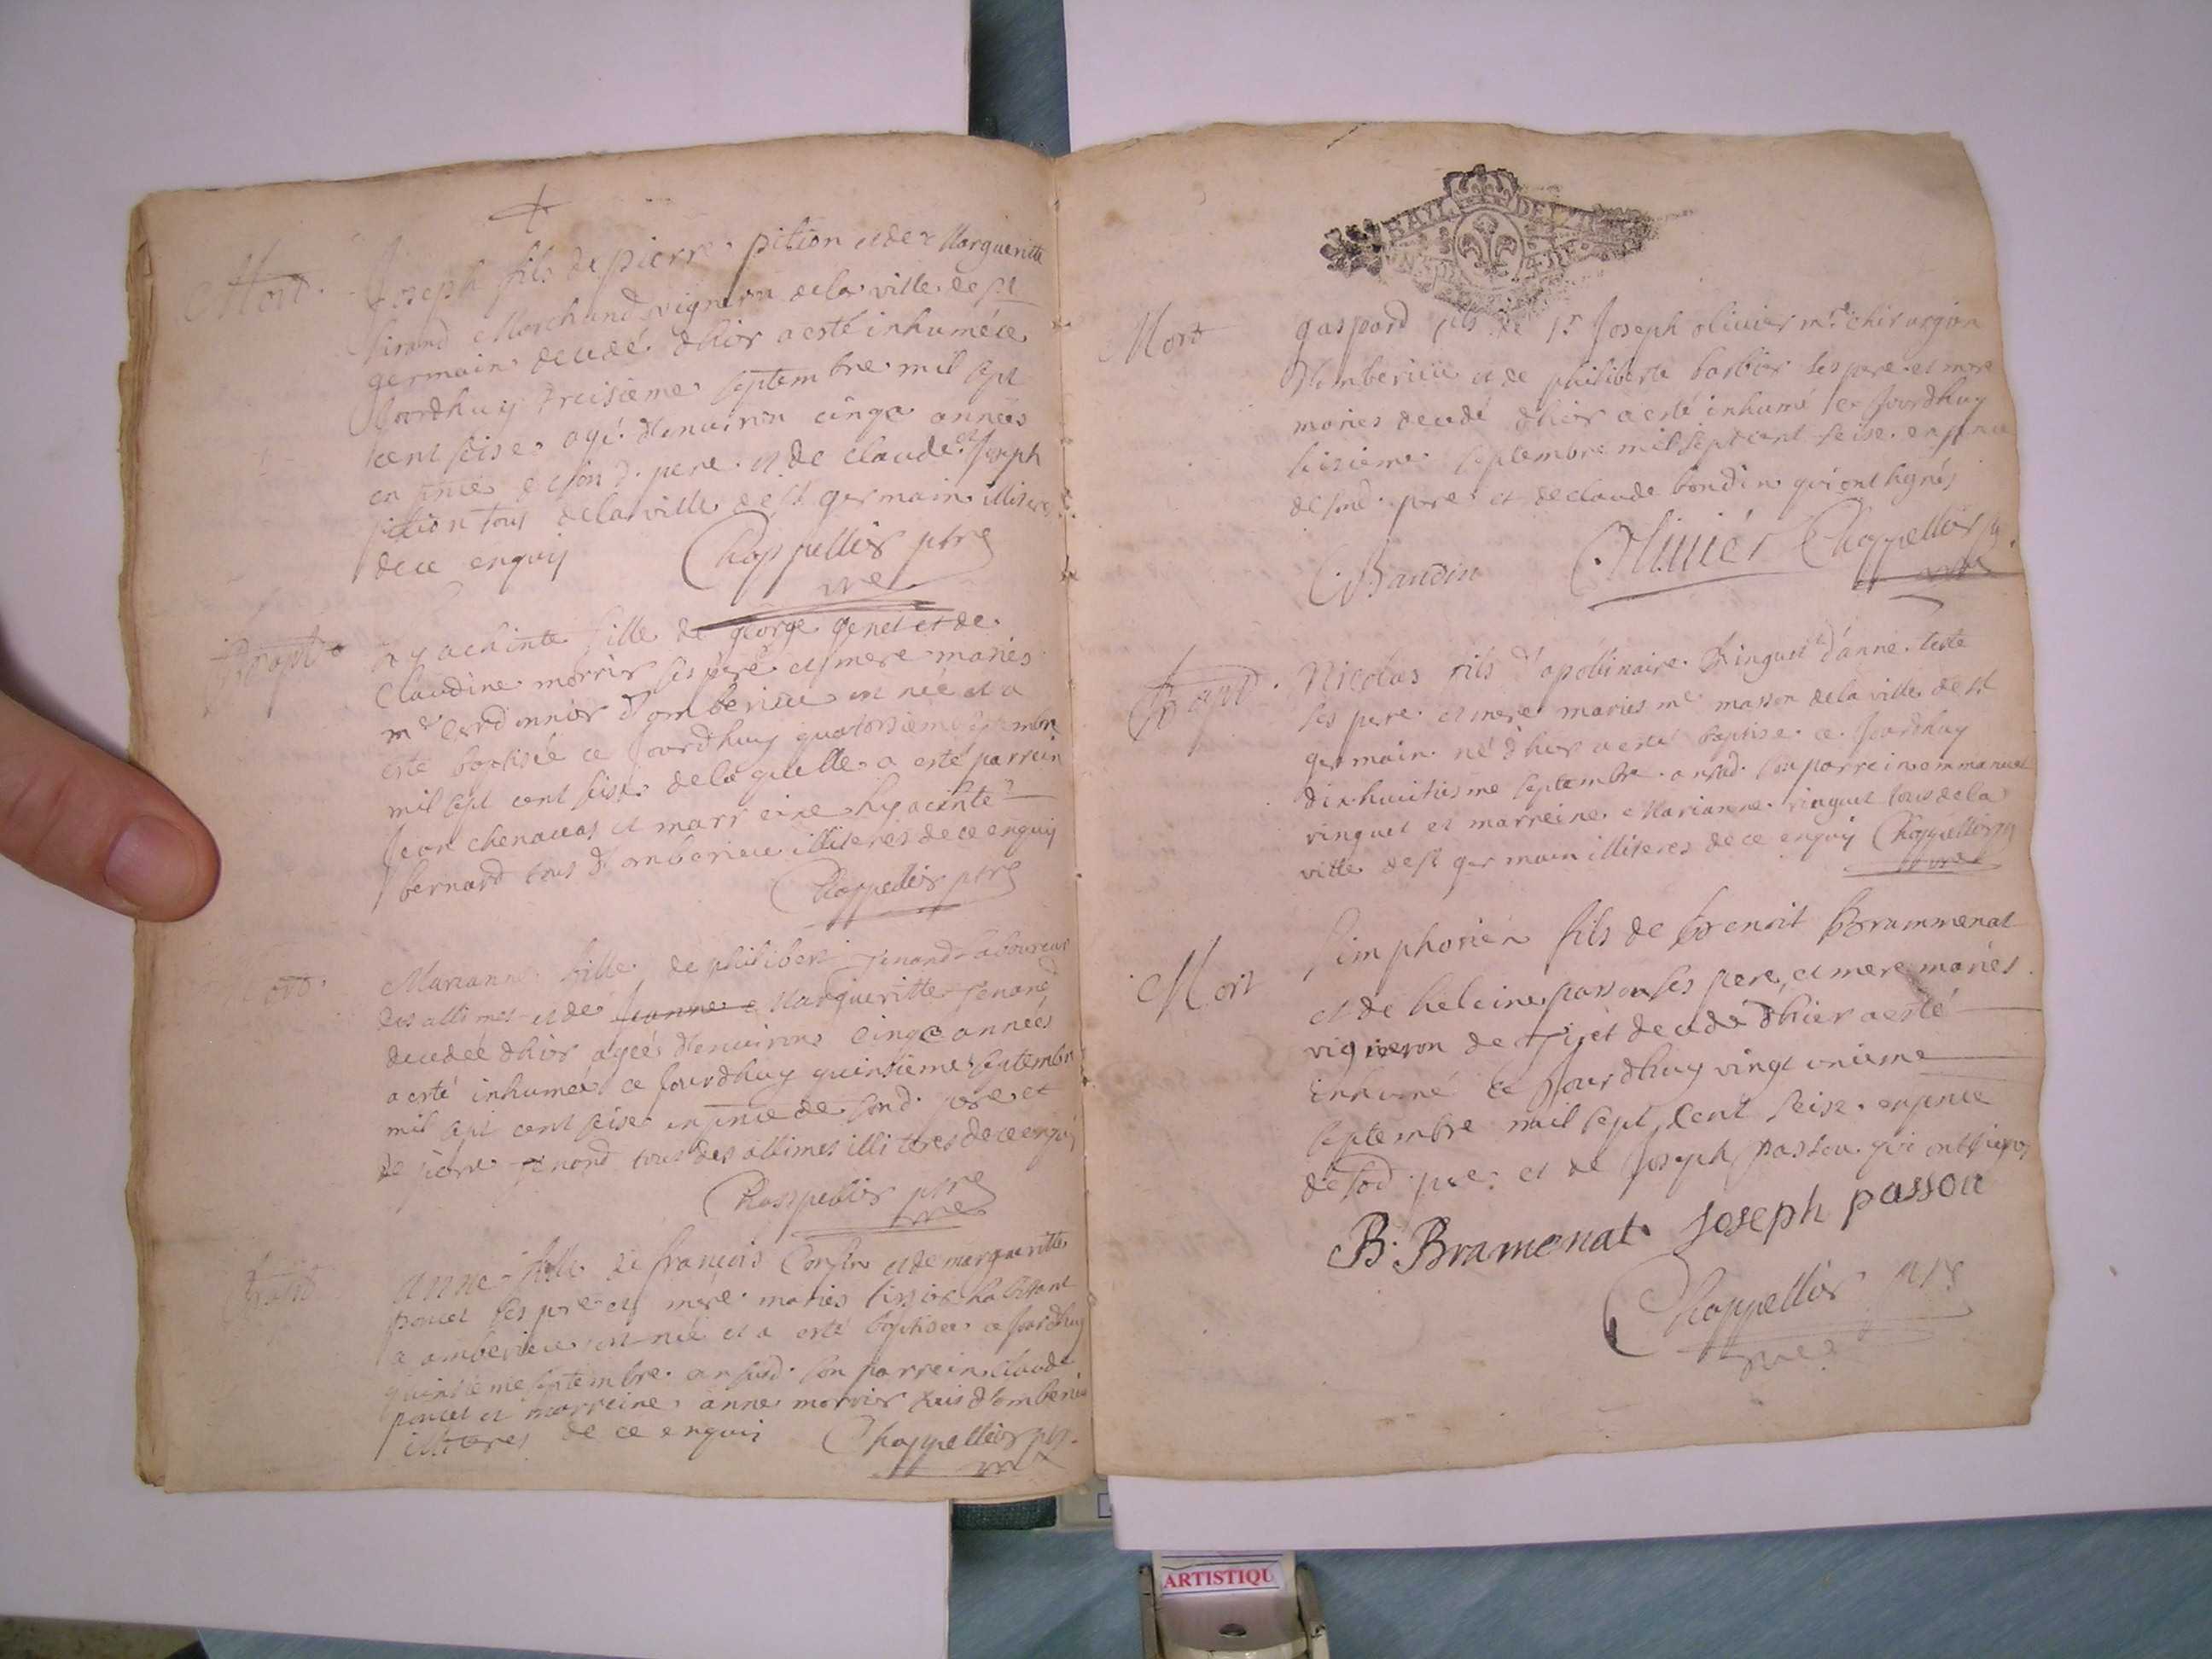 Mort.
Joseph fils de pierre pition et de Margueritte
Girand Marchand vigneron de la ville de st
germain decedé d'hier a esté inhumé ce
Jourdhuy treisieme septembre mil sept
cent seise agé d'environ cinqe années
en pnce de son d. pere et de claude et Joseph
pition tous de la ville de st germain illiteres
de ce enquis Chappellier ptre
vre
Bapt
hyachinte fille de george genet et de
Claudine morrier ses pere et mere mariés
md Cordonnier d'amberieu est née et a
esté baptisée ce Jourdhuy quatorsieme septembre
mil sept cent seise de laquelle a esté parrein
Jean chenavas et marreine hyacinte
bernard tous d'amberieu illiteres de ce enquis
Chappellier ptre
Mort.
Marianne fille de philibert Tenand laboureur
des allimes et de Jeanne Margueritte Tenand
decedée d'hier agée d'environ cinqe années
a esté inhumée ce Jourdhuy quinsieme septembre
mil sept cent seise en pnce de sond. pere et
de pierre Tenand tous des allimes illiteres de ce enquis
Chappellier ptre
vre
Bapt
Anne fille de françois et de margueritte
poncet ses pere et mere mariés tissier habitant
a amberieu est née et a esté baptisée ce Jourdhuy
quinsieme septembre an susd. son parrein claude
poncet et marreine anne morrier tous d'amberieu
illiteres de ce enquis Chappellier ptr.
vre
Mort
gaspard fils de sr Joseph olivier mre chirurgien
d'Amberieu et de philiberte barbier ses pere et mere
mariés decedé d'hier a esté inhumé ce Jourdhuy
seisieme septembre mil sept cent seise en pnce
de sond. pere et de claude bondin qui ont signés
C Baudin Ollivier Chappellier p.
Bapt.
Nicolas fils d'apollinaire Vinguet d'anne teste
ses pere et mere mariés me masson de la ville de st
germain né d'hier a esté baptisé ce Jourdhuy
dix huitiesme septembre an susd. son parrein emmanuel
vinguet et marreine Marianne vinguet tous de la
ville de st germain illiteres de ce enquis Chappellier ptr
vre
Mort
Simphorien fils de Benoit Brammenat
et de heleine passou ses pere et mere mariés
vigneron de Tiret decedé d'hier a esté
inhumé ce Jourdhuy vingt unieme
septembre mil sept cent seise en pnce
de sod. pere et de Joseph passou qui ont signés
B. Bramenat Joseph passou
Chappellier ptre
vre
ARTISTIQU